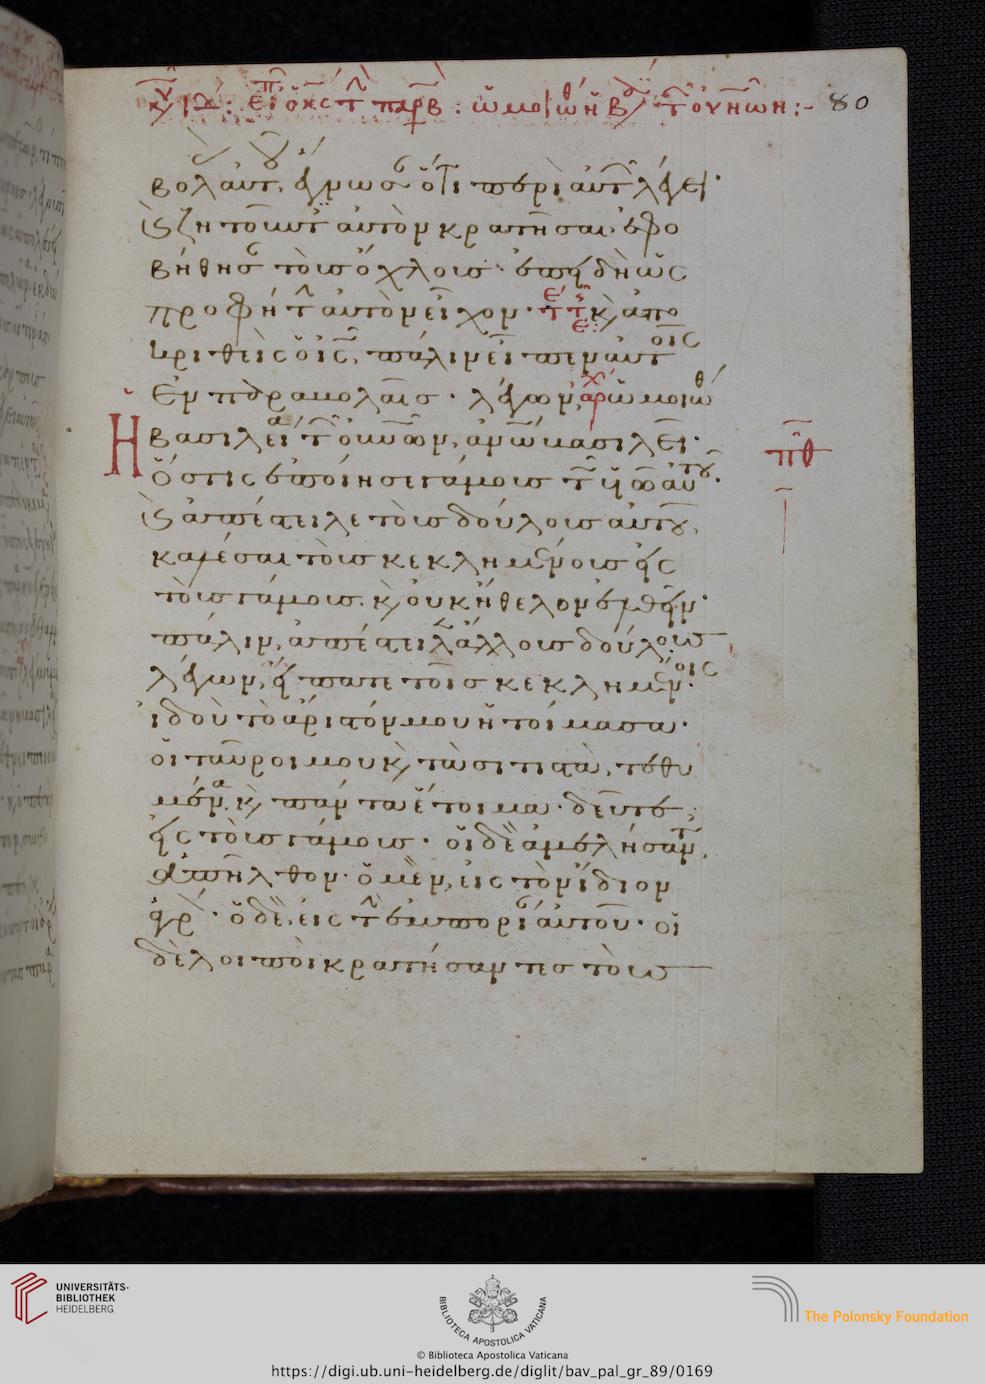 80
βολὰς αὐτοῦ, ἔγνωσαν ὅτι περὶ αὐτῶν λέγει·
καὶ ζητοῦντες αὐτὸν κρατῆσαι, ἐφο
βήθησαν τοὺς ὄχλους· ἐπειδὴ ὡς
προφήτην αὐτὸν εἶχον· κ, ἀπο
κριθεὶς ὁ ις, πάλιν εἶπεν αὐτοῖς
ἐν παραβολαῖς· λέγων, ὡμοιώθη
Ἡ βασιλεία τῶν οὐνῶν, ἀνῶ βασιλεῖ·
Ὅστις ἐποίησε γάμους τῶ υἱῶ αὐτοῦ·
καὶ ἀπέστειλε τοὺς δούλους αὐτοῦ,
καλέσαι τοὺς κεκλημένους εἰς
τοὺς γάμους. κ, οὐκ ἤθελον ἐλθεῖν·
πάλιν, ἀπέστειλεν ἄλλους δούλους
λέγων, εἴπατε τοῖς κεκλημένοις·
ἰδοὺ τὸ ἄριστόν μου ἡτοίμασα·
οἱ ταῦροι μου κ, τὰ σιτιστὰ, τεθυ
μένα κ, πάντα ἕτοιμα· δεῦτε
εἰς τοὺς γάμους· οἱ δὲ ἀμελήσαντες,
ἀπῆλθον· ὁ μὲν, εἰς τὸν ἴδιον
ἀγρόν· ὁ δὲ, εἰς τὴν ἐμπορίαν αὐτοῦ· οἱ
δὲ λοιποὶ κρατήσαντες τοὺς
πθ
UNIVERSITÄTS-
BIBLIOTHEK
HEIDELBERG
BIBLIOTECA APOSTOLICA VATICANA
The Polonsky Foundation
© Biblioteca Apostolica Vaticana
https://digi.ub.uni-heidelberg.de/diglit/bav_pal_gr_89/0169